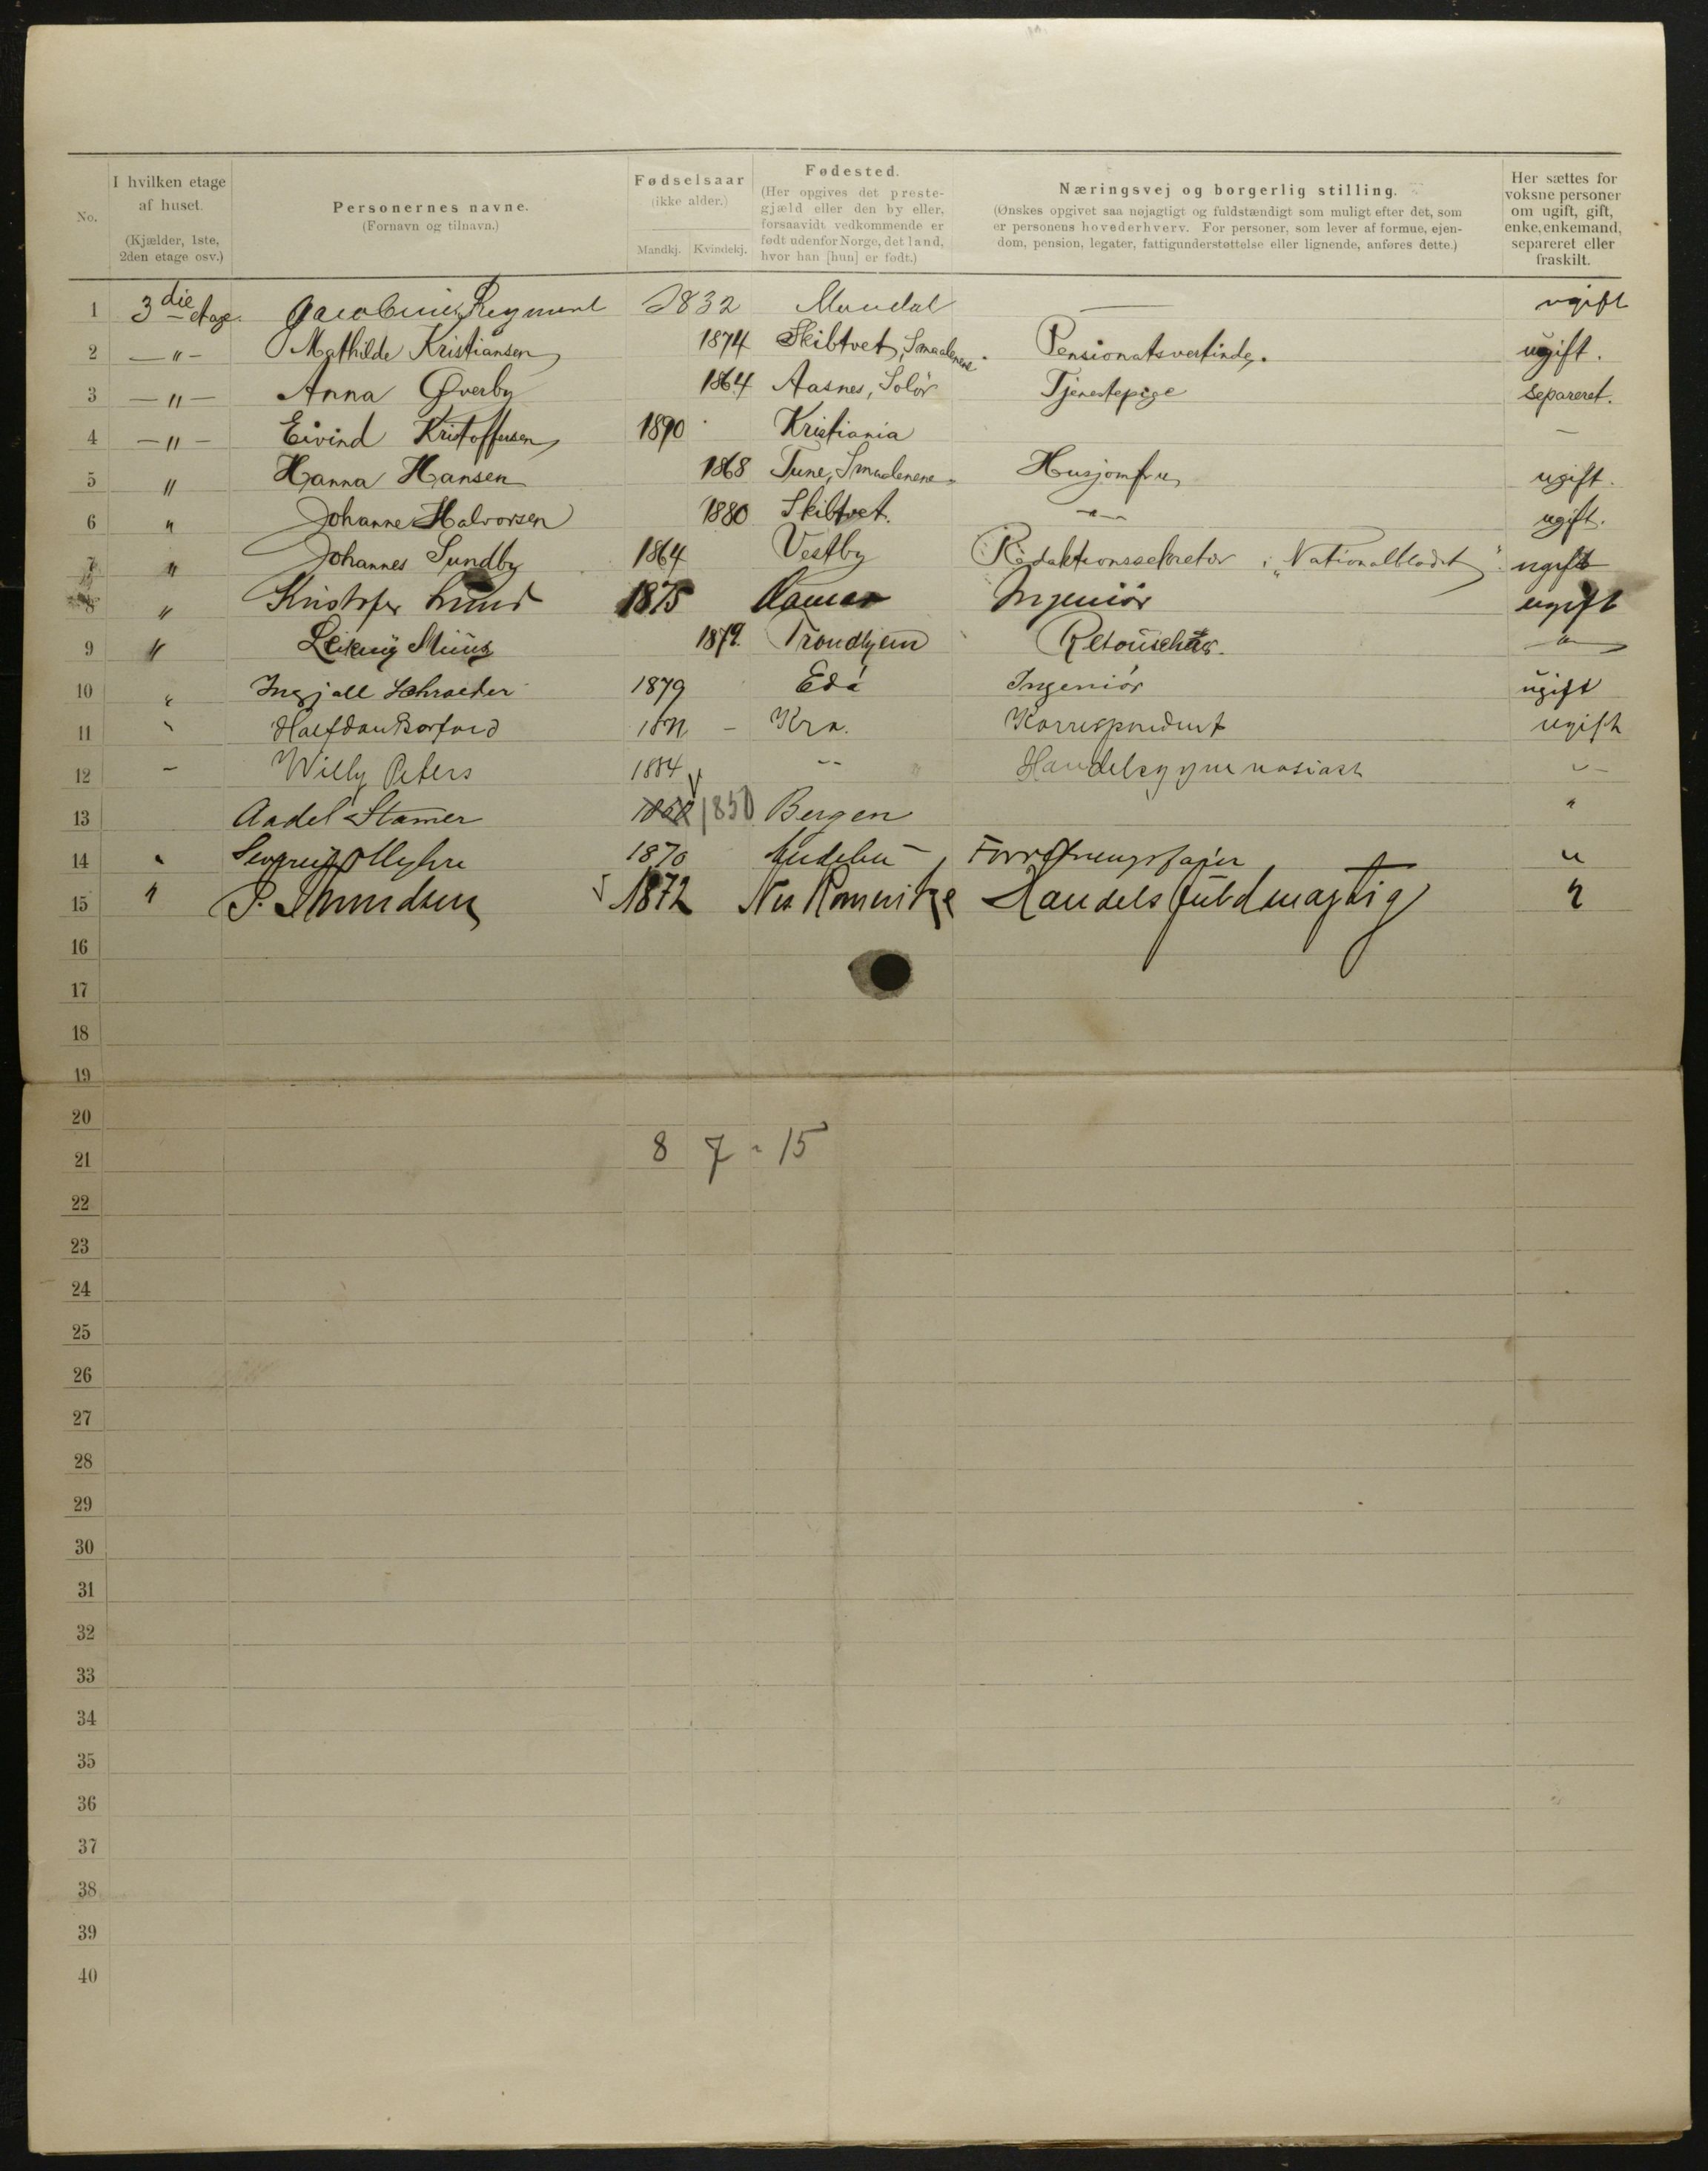 No. I hvilken etage af huset. (Kjælder, 1ste, 2den etage osv.) Personernes navne. (Fornavn og tilnavn.) Fødselsaar (ikke alder.) Mandkj. Kvindekj. Fødested. (Her opgives det prestegjæld eller den by eller, forsaavidt vedkommende er født udenfor Norge, det land, hvor han [hun] er født.) Næringsvej og borgerlig stilling. (Ønskes opgivet saa nøjagtigt og fuldstændigt som muligt efter det, som er personens hovederhverv. For personer, som lever af formue, ejendom, pension, legater, fattigunderstøttelse eller lignende, anføres dette.) Her sættes for voksne personer om ugift, gift, enke, enkemand, separeret eller fraskilt.
1 3die etage. 1832 Mandal — ugift
2 —"— Mathilde Kristiansen 1874 Skibtvet, Smaalenene. Pensionatsvertinde. ugift.
3 —"— Anna Øverby 1864 Aasnes, Solør Tjenestepige separeret.
4 —"— Eivind Kristoffersen 1890 Kristiania —
5 " Hanna Hansen 1868 Tune, Smaalenene. Husjomfru ugift.
6 " Johanne Halvorsen 1880 Skibtvet. —"— ugift.
7 " Johannes Sundby 1864 Vestby Redaktionssekretær i „Nationalbladet" ugift
8 " Kristofer Lund 1875 Hamar Ingeniør ugift
9 " 1879. Trondhjem —"—
10 " Ingjall Schrøeder 1879 Ingeniör ugift
11 " Halfdan Kra. Korrespondent ugift
12 — Willy Peters 1884 " Handelsgymnasiast "
13 Aadel Stamer 1850 Bergen "
14 " Myhre 1870 "
15 " 1872 Nes Romerike Handelsfuldmægtig "
16
17
18
19
20
21 8 7 = 15
22
23
24
25
26
27
28
29
30
31
32
33
34
35
36
37
38
39
40